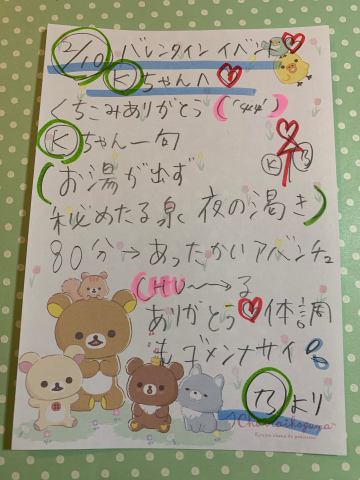 2/10 バレンタインイベント
Kちゃんへ
くちこみありがとう
Kちゃん一句
お湯が出ず
秘めたる泉 夜の渇き
80分→あったかいアバンチュ
CHU〜→る
ありがとう 体調
もゴメンナサイ
乃より
Chairoikoguma